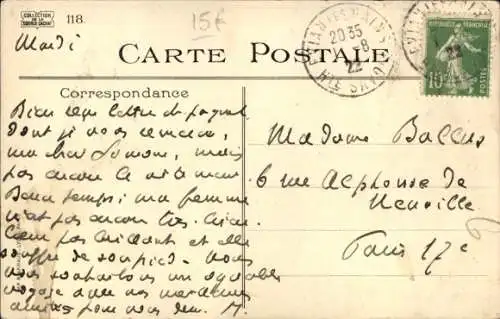 COLLECTION
DE LA
SOURCE CACHAT
118.
15F
Mardi
CARTE POSTALE
EVIAN LES BAINS
20 35
-8
22
HTE SAVOIE
REPUBLIQUE FRANCAISE
10
Correspondance
Bien reçu lettre de
dont je vous remercie,
ma chère Simone, mais
pas encore le
Beau temps; ma femme
n'est pas encore très bien
pas brillant et elle
souffre de son pied. Nous
vous souhaitons un agréable
voyage avec nos meilleures
amitiés pour vous deux. M.
Madame Ballus
6 rue Alphonse de
Neuville
Paris 17e